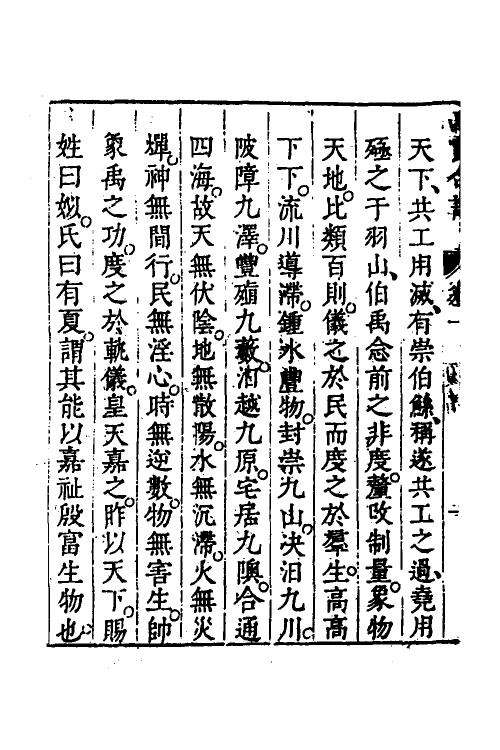 天下、共工用滅、有崇伯鯀、稱遂共工之過、堯用
殛之于羽山、伯禹念前之非度。釐改制量。象物
天地。比類百則。儀之於民而度之於羣生。高高
下下。流川導滯。鍾水豐物。封崇九山。决汩九川。
陂障九澤。豐殖九藪。汩越九原。宅居九隩。合通
四海。故天無伏陰。地無散陽。水無沉滯。火無災
燀。神無間行。民無淫心。時無逆數。物無害生。帥
象禹之功。度之於軌儀。皇天嘉之。昨以天下。賜
姓曰姒。氏曰有夏。謂其能以嘉祉殷富生物也。